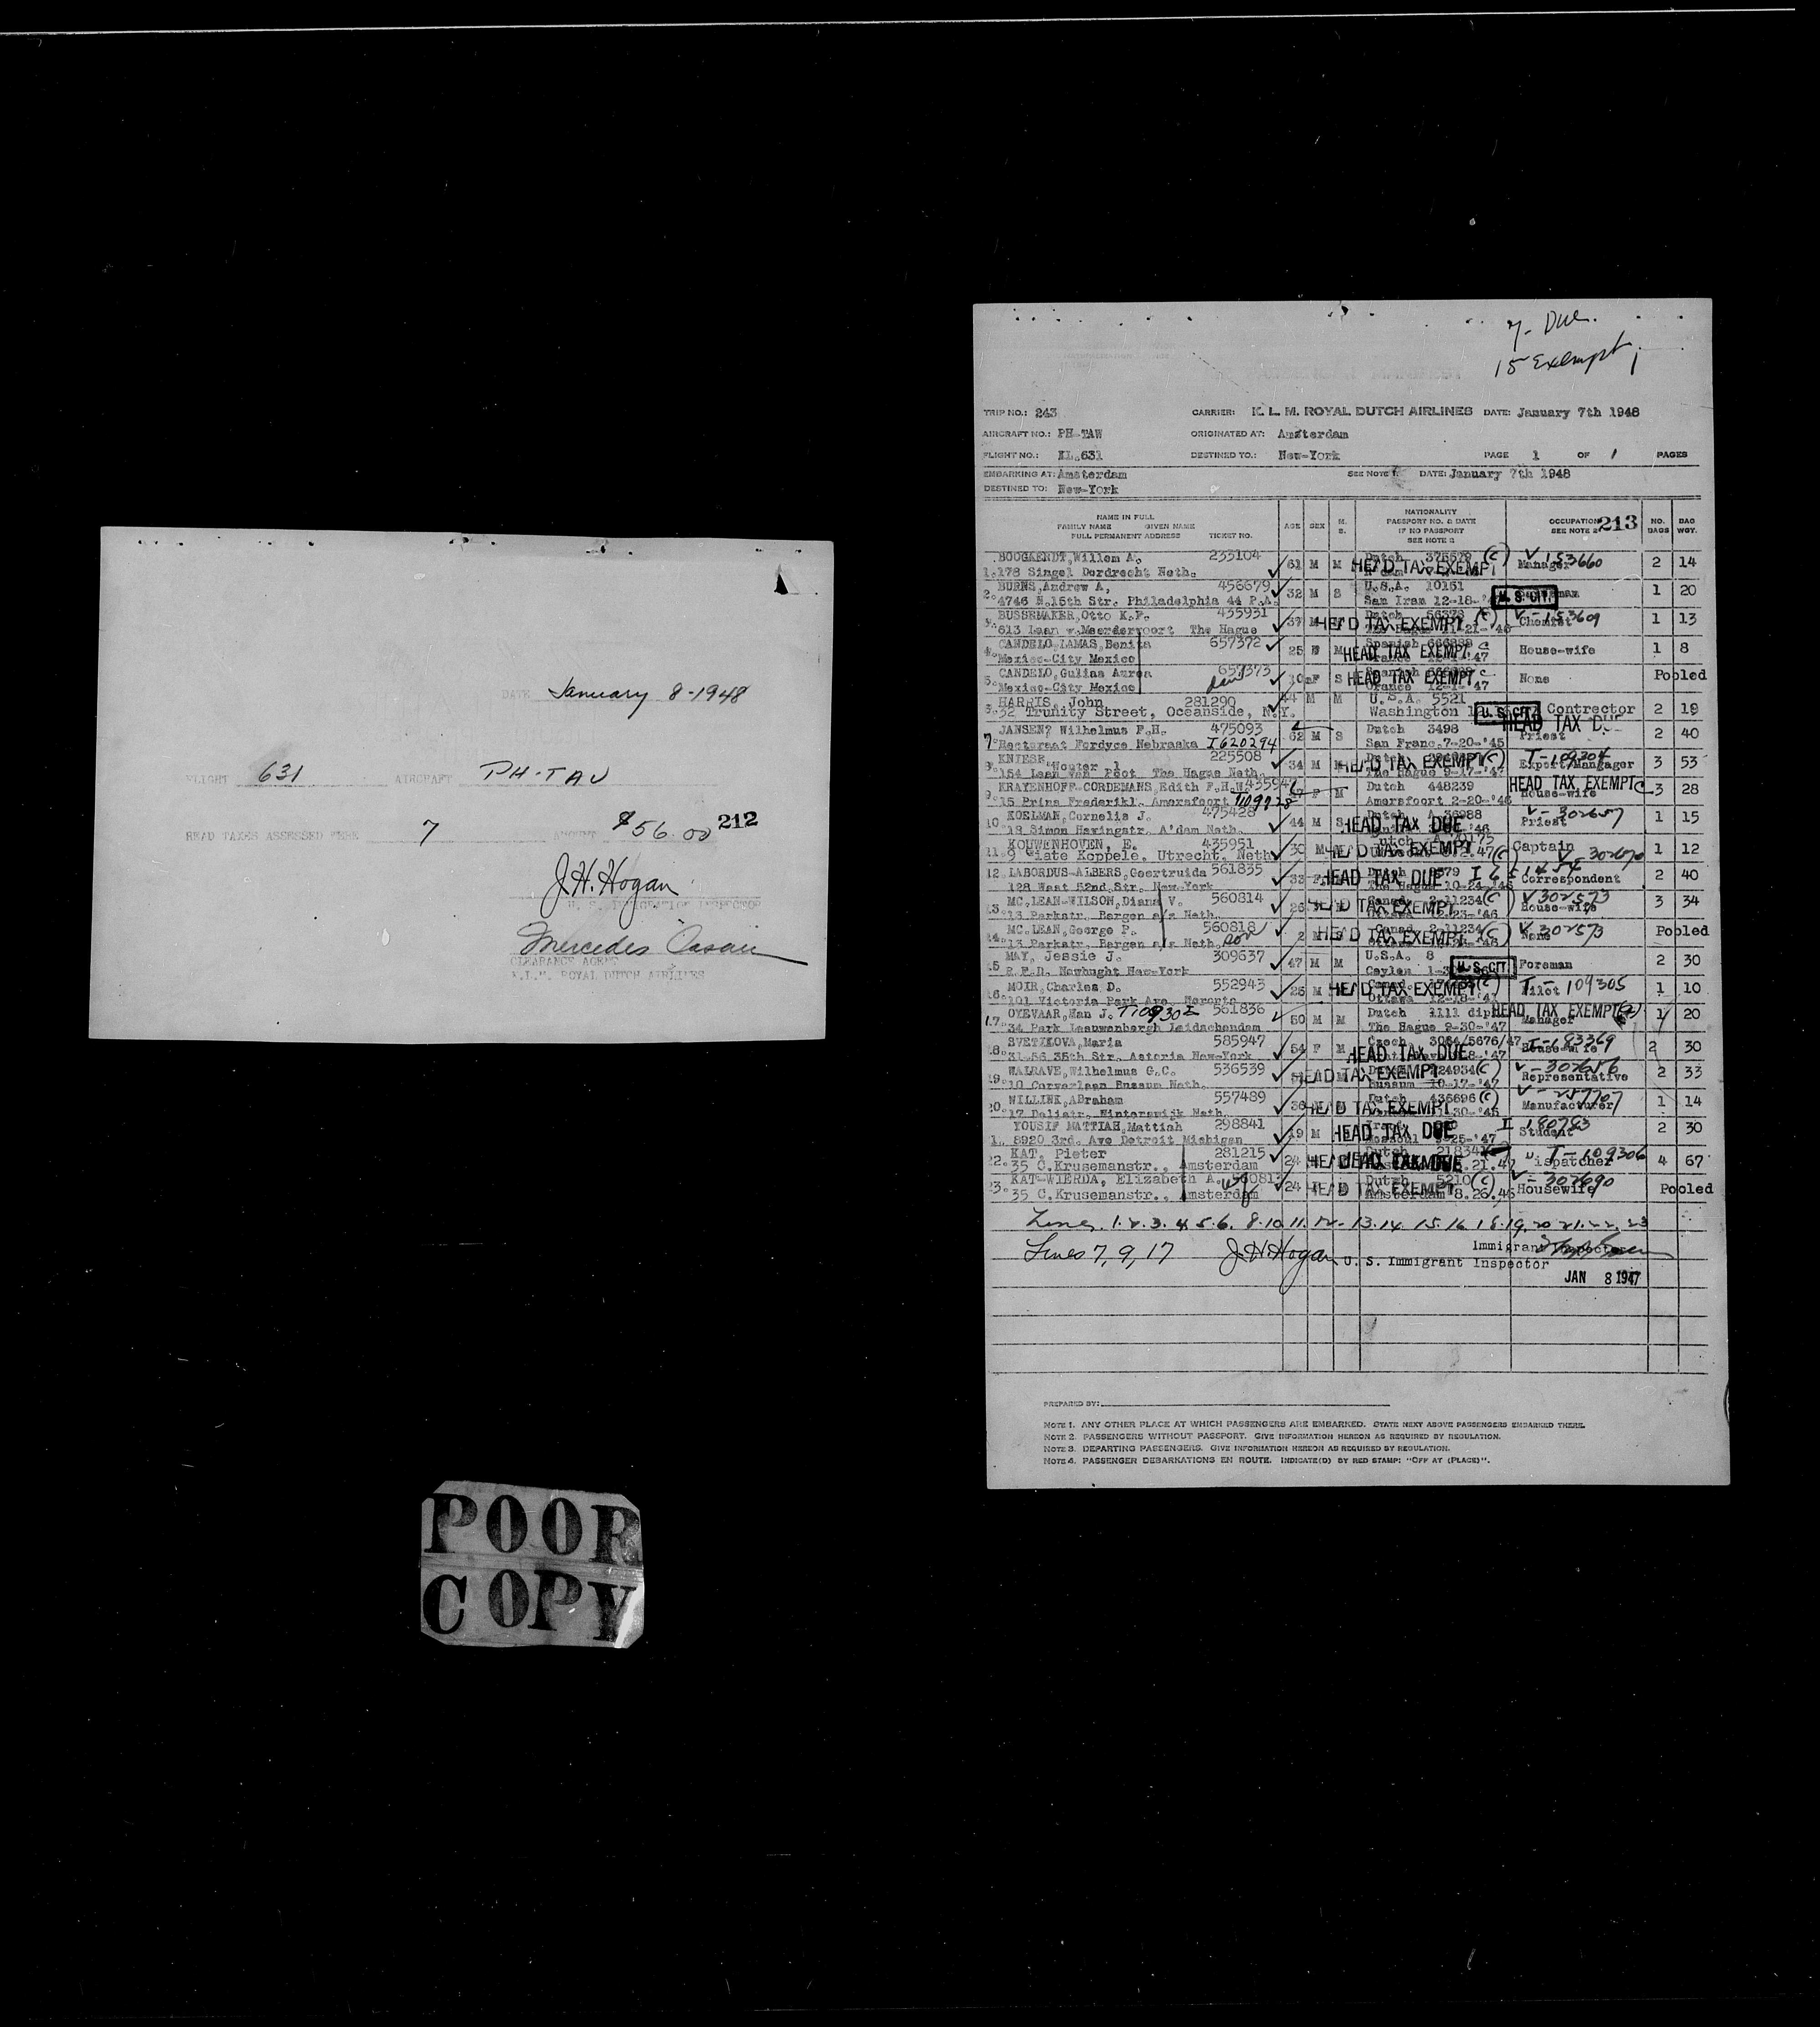 DATE January 8-1948
FLIGHT 631 AIRCRAFT PH-TAU
HEAD TAXES ASSESSED WERE 7 AMOUNT $56.00 212
J.H. Hogan
U. S. IMMIGRATION INSPECTOR
Mercedes
CLEARANCE AGENT
K.L.M. ROYAL DUTCH AIRLINES
POOR
COPY
7- Due.
15 Exempt
TRIP NO.: 243 CARRIER: K. L. M. ROYAL DUTCH AIRLINES DATE: January 7th 1948
AIRCRAFT NO.: PH-TAW ORIGINATED AT: Amsterdam
FLIGHT NO.: KL.631 DESTINED TO.: New-York PAGE 1 OF 1 PAGES
EMBARKING AT: Amsterdam SEE NOTE 1. DATE: January 7th 1948
DESTINED TO: New-York
NAME IN FULL
FAMILY NAME GIVEN NAME
FULL PERMANENT ADDRESS TICKET NO.
AGE SEX M. S.
NATIONALITY
PASSPORT NO. & DATE
IF NO PASSPORT
SEE NOTE 2
OCCUPATION
SEE NOTE 2 213
NO. BAGS BAG WGT.
BOOGAENDT, Willem A. 255104 Dutch (C) V 153660
1. 178 Singel Dordrecht Neth. 61 M M HEAD TAX EXEMPT Manager 2 14
BURNS, Andrew A, 456679 U.S.A. 10161
2. 4746 N. 15th Str. Philadelphia 44 P.A. 32 M S San Iran 12-18- U. S. CIT. 1 20
BUSSEMAKER, Otto K.F. 455931 Dutch (C) V-153609
3. 613 Laan v. Meerdervoort The Hague 37 M HEAD TAX EXEMPT The Hague 11-21-'46 Chemist 1 13
CANDELO LAMAS, Benita 657372 Spanish
4. Mexico-City Mexico 25 M HEAD TAX EXEMPT C '47 House-wife 1 8
CANDELO, Gulina Aurea 657373
5. Mexico-City Mexico 10 F S HEAD TAX EXEMPT C 12-1-'47 None Pooled
HARRIS, John 281290 44 M M U.S.A. 5521
32 Trunity Street, Oceanside, N.Y. Washington U. S. CIT. Contractor 2 19
JANSEN, Wilhelmus F.H. 475093 Dutch 3498 HEAD TAX DUE
7. Rectoraat Fordyce Nebraska I620294 62 M S San Franc. 7-20-'45 Priest 2 40
KNIESE, Wouter 225508 HEAD TAX EXEMPT (C) T-109304
8. 154 Laan van Poot The Hague Neth. 34 M M The Hague 9-17-'47 Export Mangager 3 53
KRAYENHOFF-CORDEMANS, Edith F.H.W. 435947 Dutch 448239 HEAD TAX EXEMPT C
9. 15 Prins Frederikl. Amersfoort 47 F M Amersfoort 2-20-'46 House-wife 3 28
KOELMAN, Cornelis J. 475428 Dutch A 36988 V-302657
10. 18 Simon Havingstr. A'dam Neth. 44 M S HEAD TAX DUE Priest 1 15
KOUWENHOVEN, E. 435951 Dutch
11. 9 Giate Koppele, Utrecht. Neth. 30 M M HEAD TAX EXEMPT (C) Captain V-302670 1 12
12. LABORDUS-ALBERS, Geertruida 561835 33 F HEAD TAX DUE
128 West 52nd. Str. New-York The Hague 10-24-'46 Correspondent 2 40
MC. LEAN-WILSON, Diana V. 560814 Canad. 2-11234 (C) V302573
13. 13 Parkstr. Bergen a/z Neth. 26 HEAD TAX EXEMPT Ottawa House-wife 3 34
MC. LEAN, George P. 560818 Canad. 2-11234 (C) V 302573
14. 13 Parkstr. Bergen a/z Neth. son 2 M S HEAD TAX EXEMPT None Pooled
MAY, Jessie J. 309637 U.S.A. 8
15. R.F.D. Newbught New-York 47 M M Ceylon U. S. CIT. Foreman 2 30
MOIR, Charles D. 552943 HEAD TAX EXEMPT (C) T-109305
16. 101 Victoria Park Ave. 26 M Ottawa 12-18- Pilot 1 10
OYEVAAR, Han J. T109302 561836 Dutch 1111 dip HEAD TAX EXEMPT
17. 34 Park Leeuwenbergh Leidschendam 50 M M The Hague 9-30-'47 Manager 1 20
SVETIKOVA, Maria 585947 Czech 3064/5676/47 I-183369
18. 31-56 35th Str. Astoria New-York 54 F M HEAD TAX DUE '47 House-wife 2 30
WALRAVE, Wilhelmus G.C. 536539 (C) V-302656
19. 10 Corverlaan Bussum Neth. HEAD TAX EXEMPT Bussum 10-17-'47 Representative 2 33
WILLINK, ABraham 557489 Dutch 436696 (C) V-257707
20. 17 Dalistr. Winterswijk Neth. 36 HEAD TAX EXEMPT 30-'45 Manufacturer 1 14
YOUSIF MATTIAH, Mattiah 298841 I 180783
1. 8920 3rd. Ave Detroit Michigan 19 M HEAD TAX DUE Mossoul 25-'47 Student 2 30
KAT, Pieter 281215 Dutch T-109306
22. 35 C.Krusemanstr., Amsterdam 24 HEAD TAX DUE .21.47 Dispatcher 4 67
KAT-WIERDA, Elizabeth A. wf Dutch 5210 (C) V-302690
23. 35 C.Krusemanstr., Amsterdam 24 F HEAD TAX EXEMPT Amsterdam 8.26.46 Housewife Pooled
Lines 1. 2. 3. 4. 5. 6. 8. 10 11. 12- 13. 14. 15. 16 18. 19. 20 21. 22. 23
Immigrant Inspector
Lines 7, 9, 17 J H Hogan U. S. Immigrant Inspector
JAN 8 1947
PREPARED BY:
NOTE 1. ANY OTHER PLACE AT WHICH PASSENGERS ARE EMBARKED. STATE NEXT ABOVE PASSENGERS EMBARKED THERE.
NOTE 2. PASSENGERS WITHOUT PASSPORT. GIVE INFORMATION HEREON AS REQUIRED BY REGULATION.
NOTE 3. DEPARTING PASSENGERS. GIVE INFORMATION HEREON AS REQUIRED BY REGULATION.
NOTE 4. PASSENGER DEBARKATIONS EN ROUTE. INDICATE(D) BY RED STAMP: "OFF AT (PLACE)".